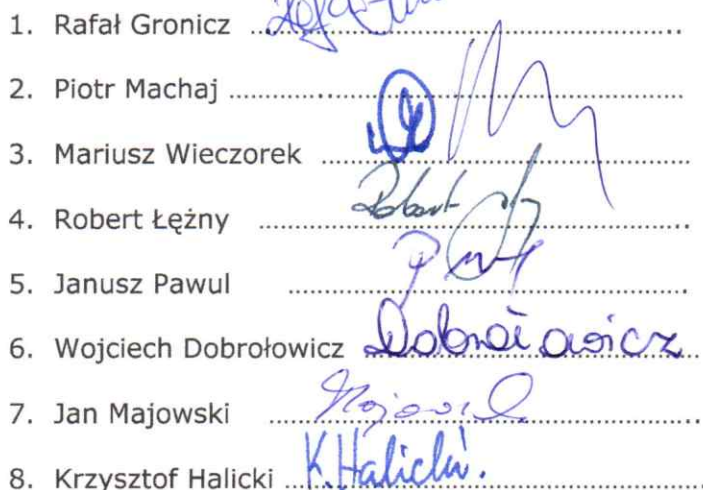 1. Rafał Gronicz ........................................
2. Piotr Machaj ........................................
3. Mariusz Wieczorek ........................................
4. Robert Łężny ........................................ Robert
5. Janusz Pawul ........................................
6. Wojciech Dobrołowicz ........................................
7. Jan Majowski ........................................
8. Krzysztof Halicki ........................................ K. Halicki.